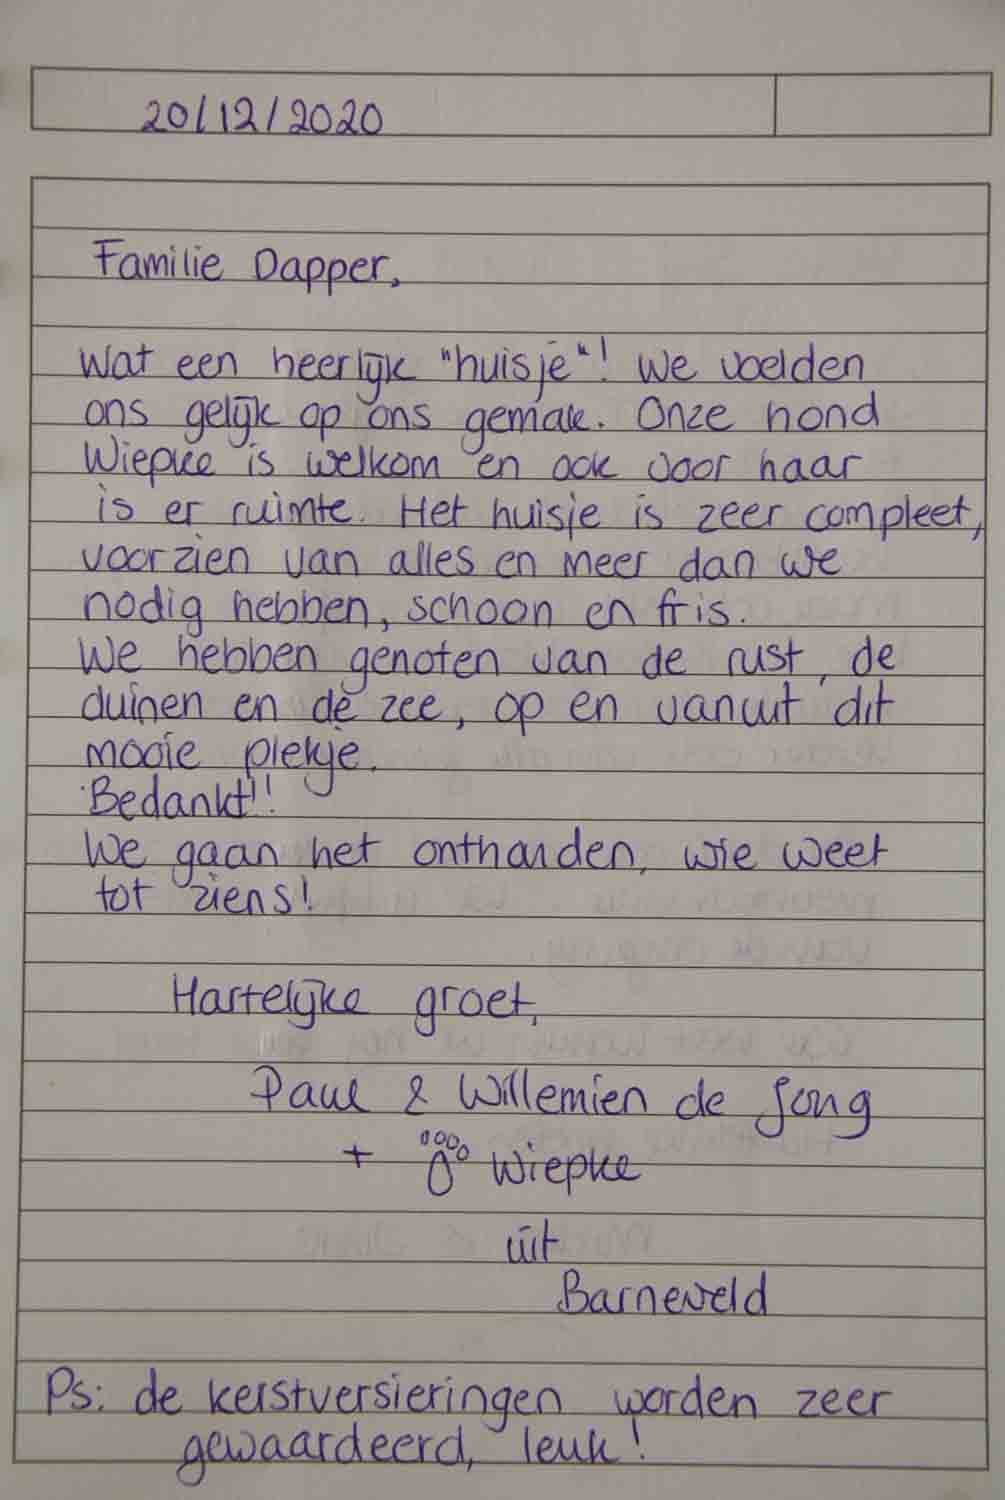 20/12/2020
Familie Dapper,
Wat een heerlijk "huisje"! We voelden
ons gelijk op ons gemak. Onze hond
Wiepke is welkom en ook voor haar
is er ruimte. Het huisje is zeer compleet,
voorzien van alles en meer dan we
nodig hebben, schoon en fris.
We hebben genoten van de rust, de
duinen en de zee, op en vanuit dit
mooie plekje.
Bedankt!!
We gaan het onthouden, wie weet
tot ziens!
Hartelijke groet,
Paul & Willemien de Jong
+ Wiepke
uit
Barneveld
Ps: de kerstversieringen worden zeer
gewaardeerd, leuk!